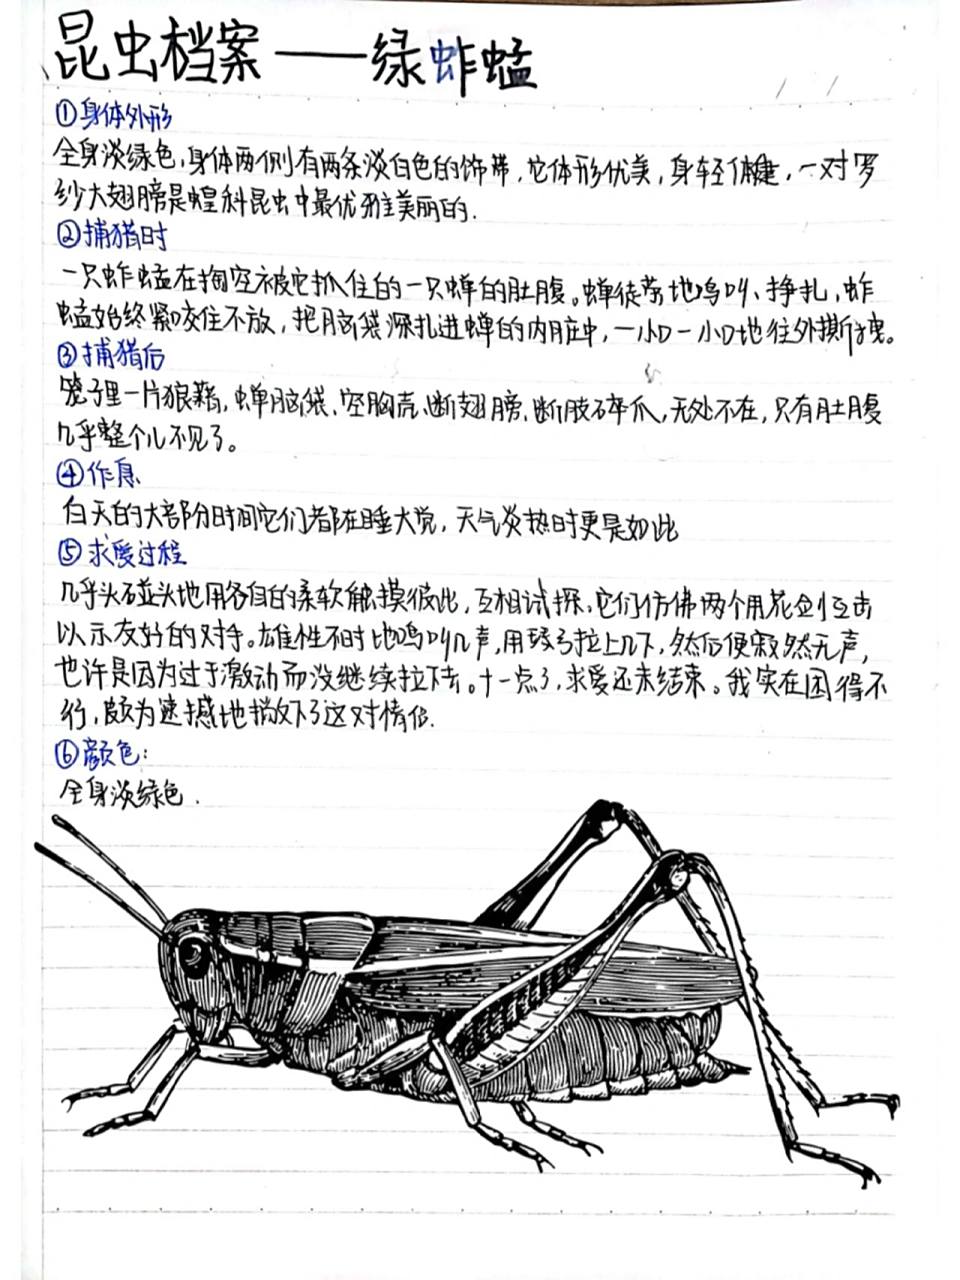 昆虫档案——绿蚱蜢
①身体外形
全身淡绿色,身体两侧有两条淡白色的饰带,它体形优美,身轻体健,一对罗
纱大翅膀是蝗科昆虫中最优雅美丽的.
②捕猎时
一只蚱蜢在掏空被它抓住的一只蝉的肚腹。蝉徒劳地鸣叫、挣扎,蚱
蜢始终紧咬住不放,把脑袋深扎进蝉的内脏中,一小口一小口地往外撕拽。
③捕猎后
笼子里一片狼藉,蝉脑袋、空胸壳、断翅膀、断肢碎爪,无处不在,只有肚腹
几乎整个儿不见了。
④作息
白天的大部分时间它们都在睡大觉,天气炎热时更是如此
⑤求爱过程
几乎头碰头地用各自的柔软触摸彼此,互相试探,它们仿佛两个用花剑互击
以示友好的对手。雄性不时地鸣叫几声,用琴弓拉上几下,然后便寂然无声,
也许是因为过于激动而没继续拉下去。十一点了,求爱还未结束。我实在困得不
行,颇为遗憾地撇下了这对情侣.
⑥颜色:
全身淡绿色.